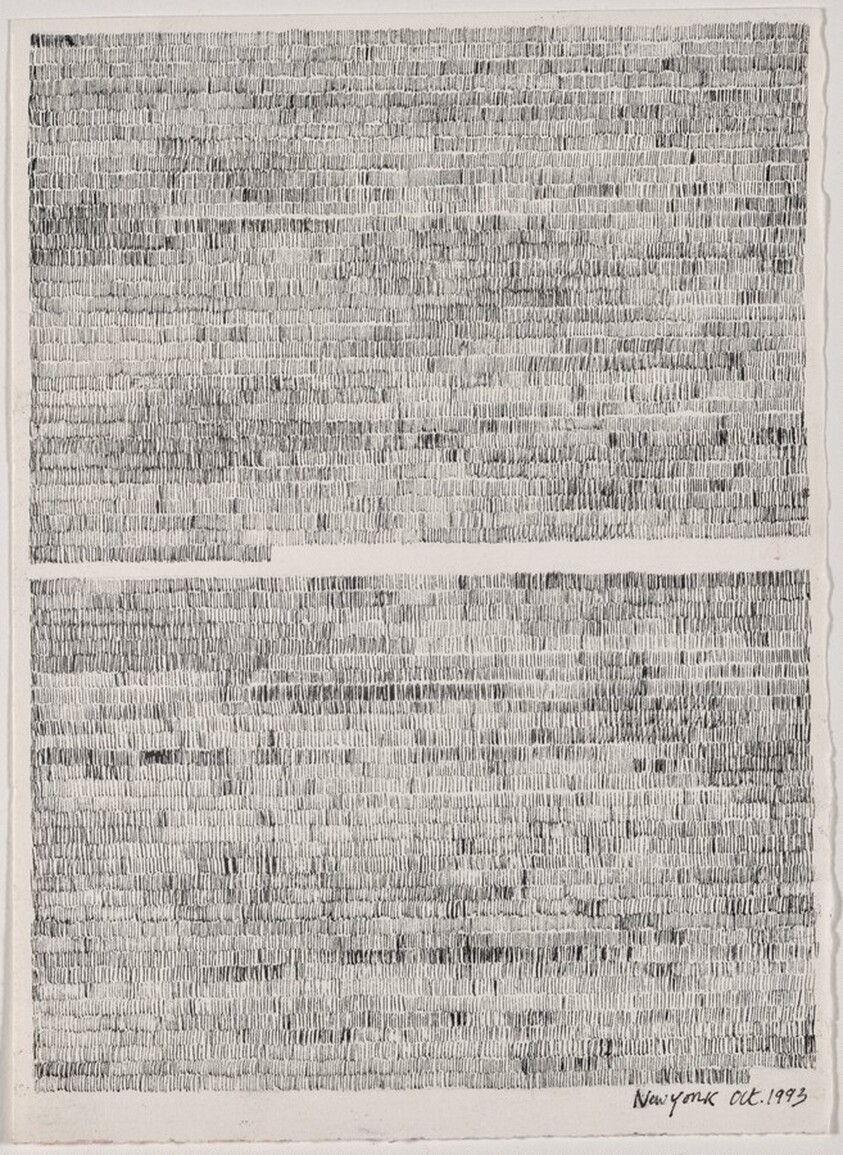 New York Oct. 1993